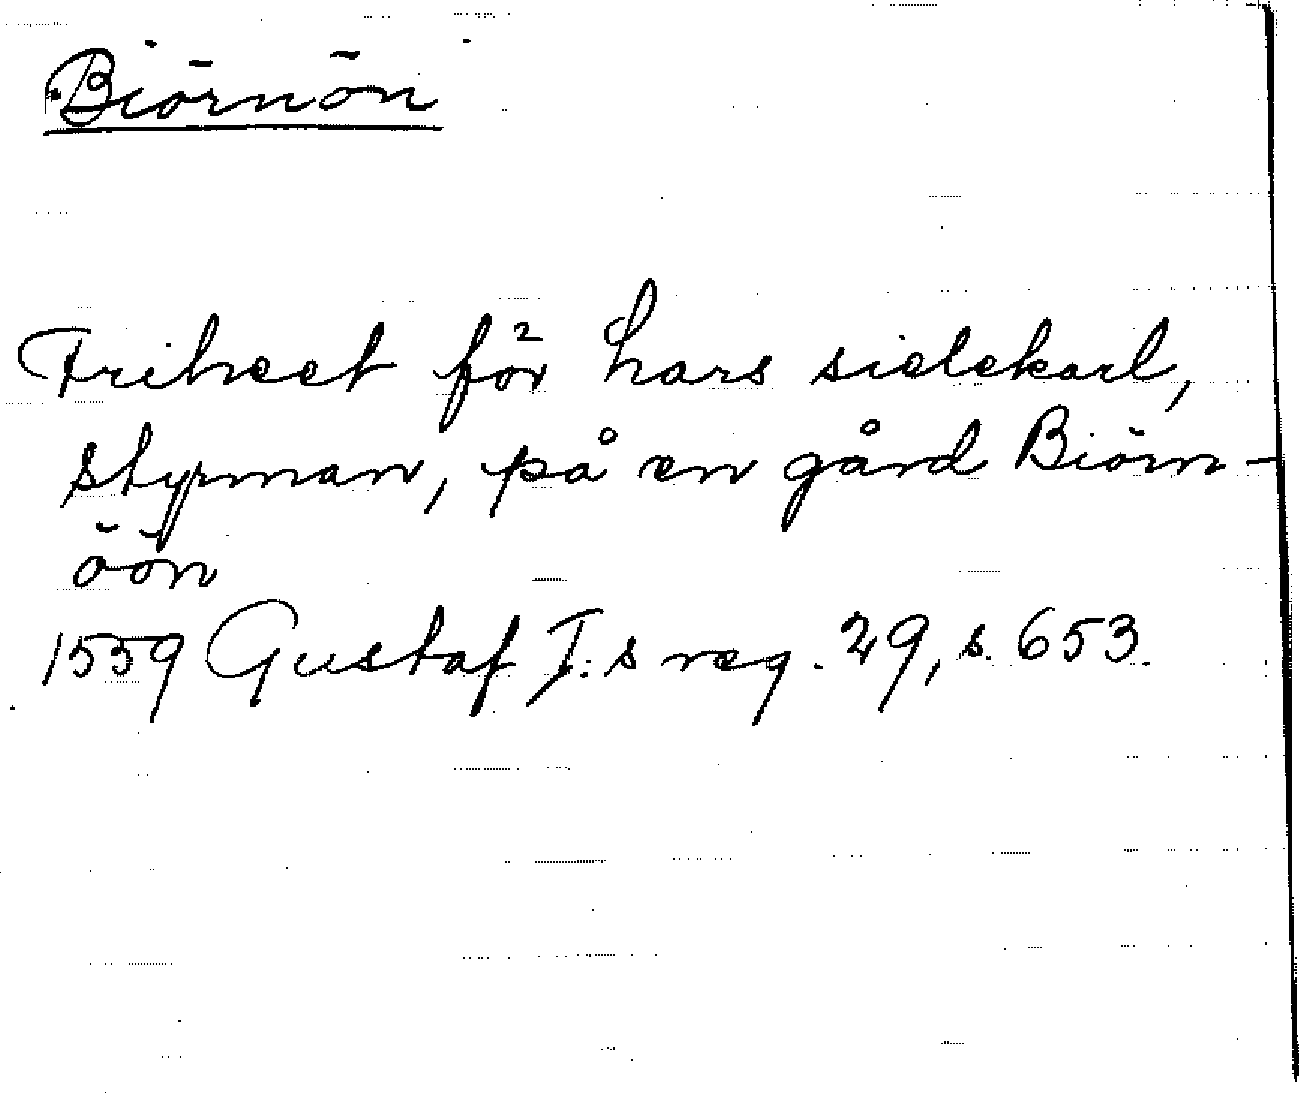 Biörnön
Friheet för Lars sielekarl,
styrman, på en gård Biörn-
öön
1559 Gustaf I:s reg. 29, s. 653.